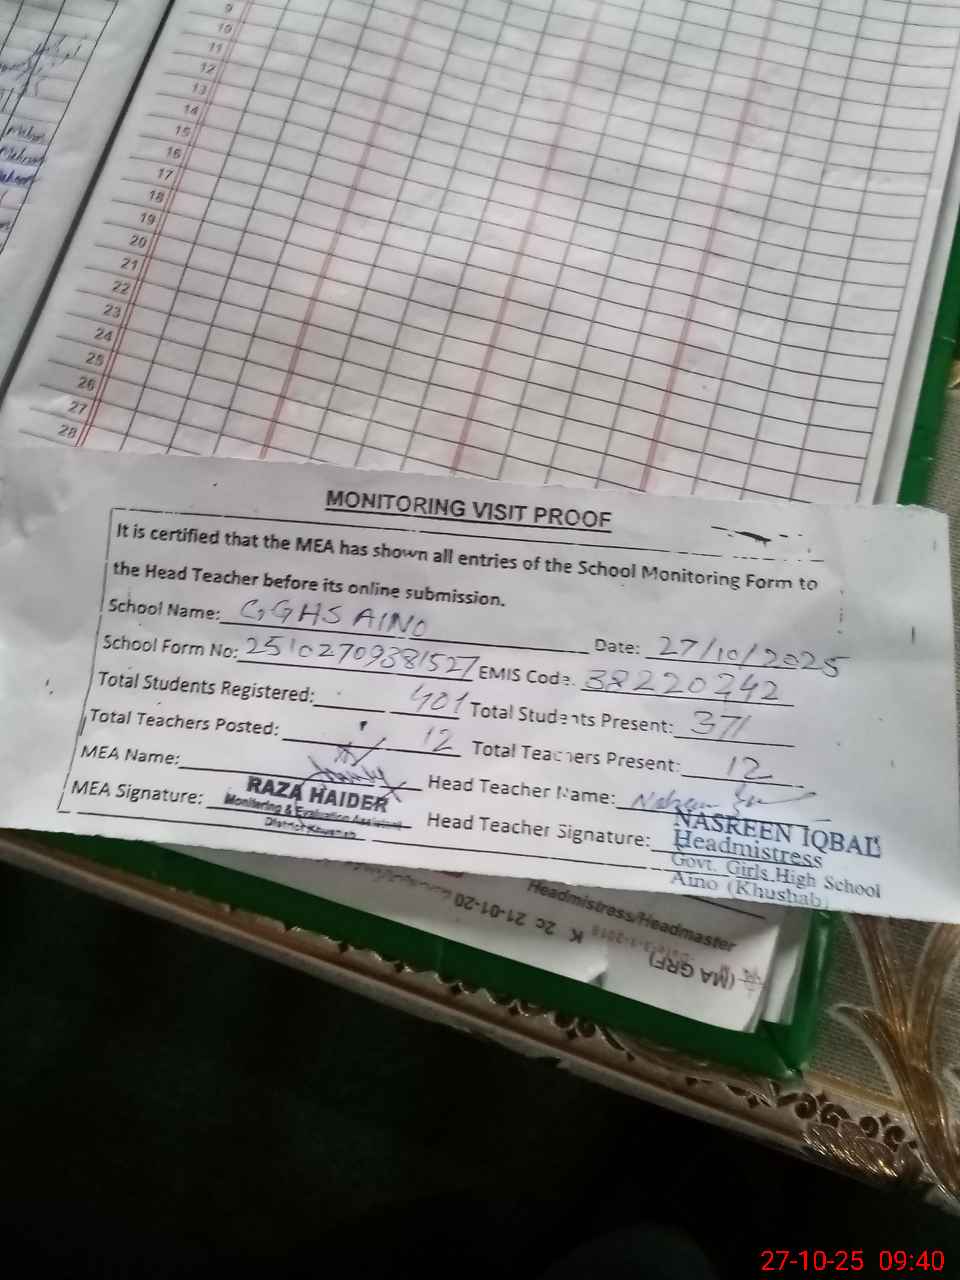 9
10
11
12
13
14
15
16
17
18
19
20
21
22
23
24
25
26
27
28
MONITORING VISIT PROOF
It is certified that the MEA has shown all entries of the School Monitoring Form to
the Head Teacher before its online submission.
School Name: GGHS AINO Date: 27/10/2025
School Form No: 25102709381527 EMIS Code: 38220242
Total Students Registered: 401 Total Students Present: 371
Total Teachers Posted: 12 Total Teachers Present: 12
MEA Name: Head Teacher Name:
MEA Signature: RAZA HAIDER Head Teacher Signature: NASREEN IQBAL
Monitoring & Evaluation Assistant Headmistress
District Khushab Govt. Girls High School
Aino (Khushab)
Headmistress/Headmaster
K 2c 21-01-20
(MA GRF)
27-10-25 09:40